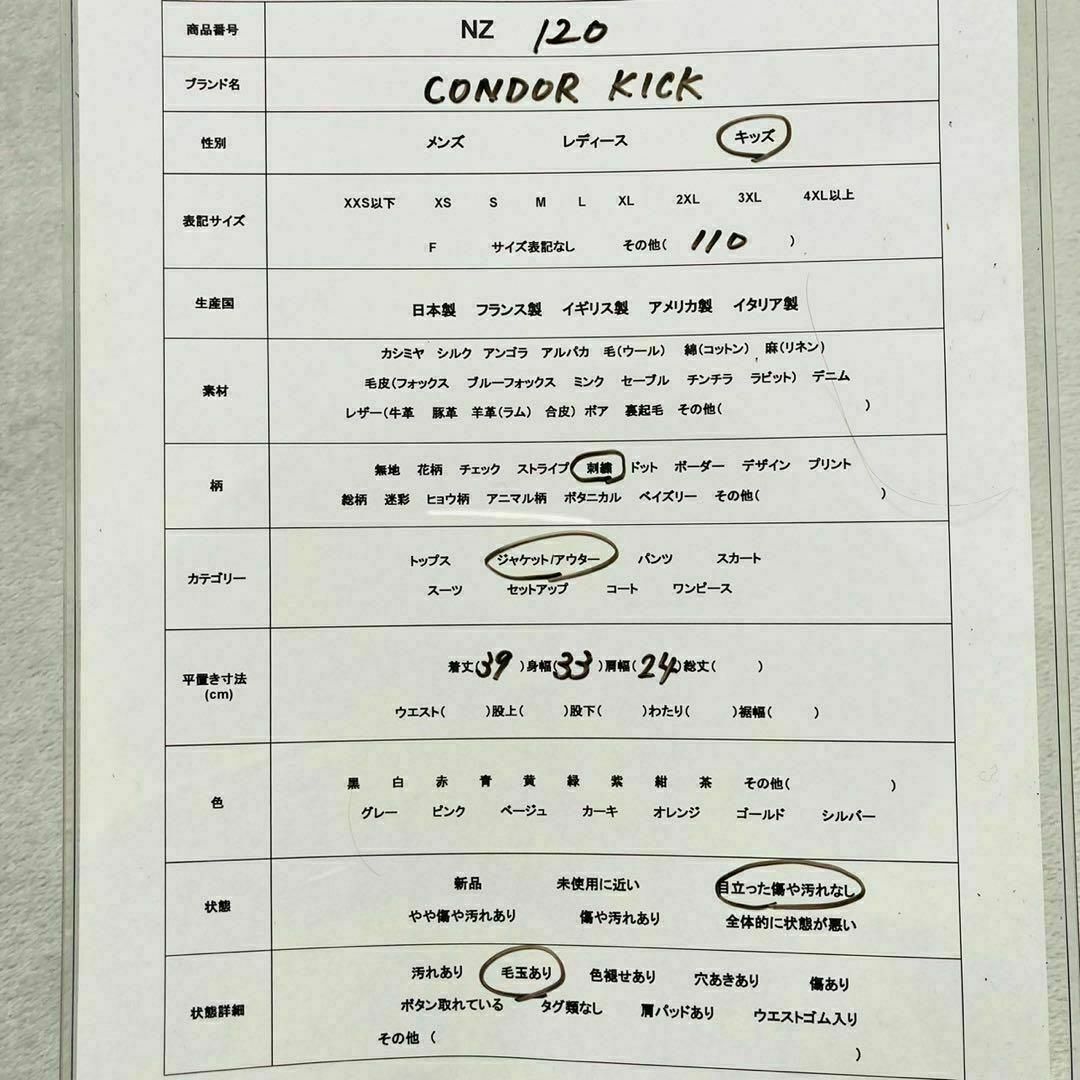 商品番号 NZ 120
ブランド名 CONDOR KICK
性別 メンズ レディース キッズ
表記サイズ XXS以下 XS S M L XL 2XL 3XL 4XL以上
F サイズ表記なし その他( 110 )
生産国 日本製 フランス製 イギリス製 アメリカ製 イタリア製
素材 カシミヤ シルク アンゴラ アルパカ 毛(ウール) 綿(コットン) 麻(リネン)
毛皮(フォックス ブルーフォックス ミンク セーブル チンチラ ラビット) デニム
レザー(牛革 豚革 羊革(ラム) 合皮) ボア 裏起毛 その他( )
柄 無地 花柄 チェック ストライプ 刺繍 ドット ボーダー デザイン プリント
総柄 迷彩 ヒョウ柄 アニマル柄 ボタニカル ペイズリー その他( )
カテゴリー トップス ジャケット/アウター パンツ スカート
スーツ セットアップ コート ワンピース
平置き寸法 着丈(39 )身幅(33 )肩幅(24 )総丈( )
(cm) ウエスト( )股上( )股下( )わたり( )裾幅( )
色 黒 白 赤 青 黄 緑 紫 紺 茶 その他( )
グレー ピンク ベージュ カーキ オレンジ ゴールド シルバー
状態 新品 未使用に近い 目立った傷や汚れなし
やや傷や汚れあり 傷や汚れあり 全体的に状態が悪い
状態詳細 汚れあり 毛玉あり 色褪せあり 穴あきあり 傷あり
ボタン取れている タグ類なし 肩パッドあり ウエストゴム入り
その他 ( )